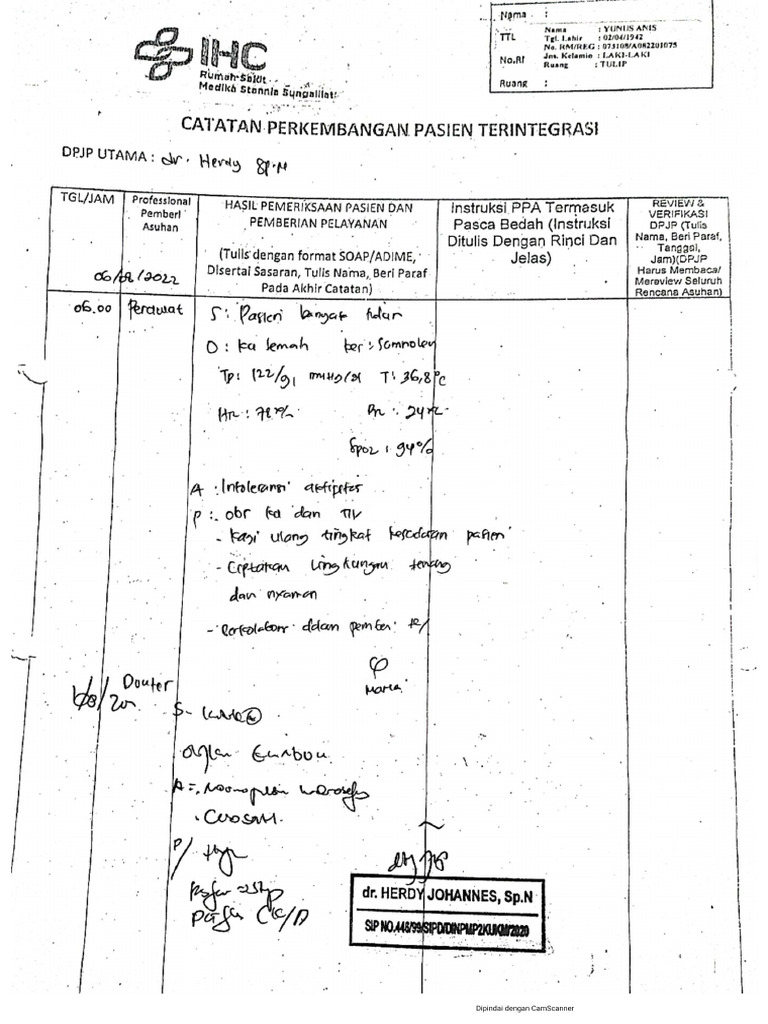 Nama :
TTL
No.RM
Ruang :
Nama : YUNUS ANIS
Tgl. Lahir : 02/04/1942
No. RM/REG : 073108/A082201075
Jns. Kelamin : LAKI-LAKI
Ruang : TULIP
IHC
Rumah Sakit
Medika Stannia Sungailiat
CATATAN PERKEMBANGAN PASIEN TERINTEGRASI
DPJP UTAMA : dr. Herdy Sp.N
TGL/JAM
06/08/2022
Professional
Pemberi
Asuhan
HASIL PEMERIKSAAN PASIEN DAN
PEMBERIAN PELAYANAN
(Tulis dengan format SOAP/ADIME,
Disertai Sasaran, Tulis Nama, Beri Paraf
Pada Akhir Catatan)
Instruksi PPA Termasuk
Pasca Bedah (Instruksi
Ditulis Dengan Rinci Dan
Jelas)
REVIEW &
VERIFIKASI
DPJP (Tulis
Nama, Beri Paraf,
Tanggal,
Jam)(DPJP
Harus Membaca/
Mereview Seluruh
Rencana Asuhan)
06.00 Perawat S : Pasien banyak tidur
O : Ku lemah kes : Somnolen
TD : 122/91 mmHg T : 36,8°c
HR : 78 x/m RR : 24 x/
SpO2 : 94%
A : Intoleransi aktifitas
P : obs ku dan TTV
- Kaji ulang tingkat kesadaran pasien
- Ciptakan lingkungan tenang
dan nyaman
- Berkolaborasi dalam pemberian
Maria
Dokter
S -
A =
P/
dr. HERDY JOHANNES, Sp.N
SIP NO.446/99/SIPD/DINPMP2KUKM/2020
Dipindai dengan CamScanner